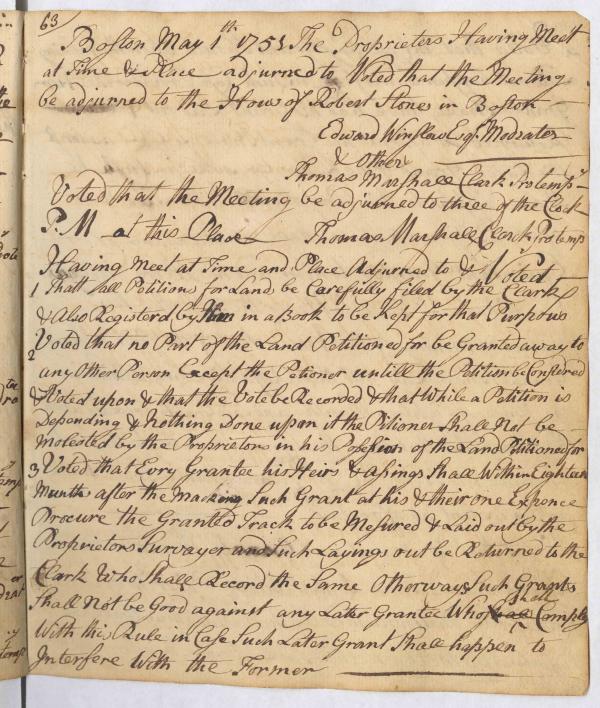 63
Boston May 1th 1751 The Proprieters Having Meet
at Time & Place adjurned to Voted that the Meeting
be adjurned to the Hows of Robert Stones in Boston
Edward Winslow Esqr Modrater
& Other
Thomas Marshall Clark Protempr
Voted that the Meeting be adjurned to three of the Clock
P.M at this Place Thomas Marshall Clerck Protempr
Having Meet at Time and Place Adjurned to & Voted
1 that all Petitions for Land be Carefully filed by the Clark
& Also Registerd by Him in a Book to be Kept for that Purpows
2 Voted that no Part of the Land Petitioned for be Granted away to
any Other Person Except the Petioner untill the Petition be Consdered
& Voted upon & that the Vote be Recorded & that While a Petition is
Depending & nothing Done upon it the Pitioner Shall Not be
molested by the Proprietors in his Possesion of the Land Pititioned for
3 Voted that Evry Grantee his Heirs & Assings Shall Within Eighteen
Munths after the Macking Such Grant at his & their one Expence
Procure the Granted Track to be Mesured & Laid out by the
Proprietors Survayer and Such Layings out be Returned to the
Clark Who Shall Record the Same Otherways Such Grants
Shall Not be Good against any Later Grantee Who Shall Comply
With this Rule in Case Such Later Grant Shall happen to
Interfere With the Former